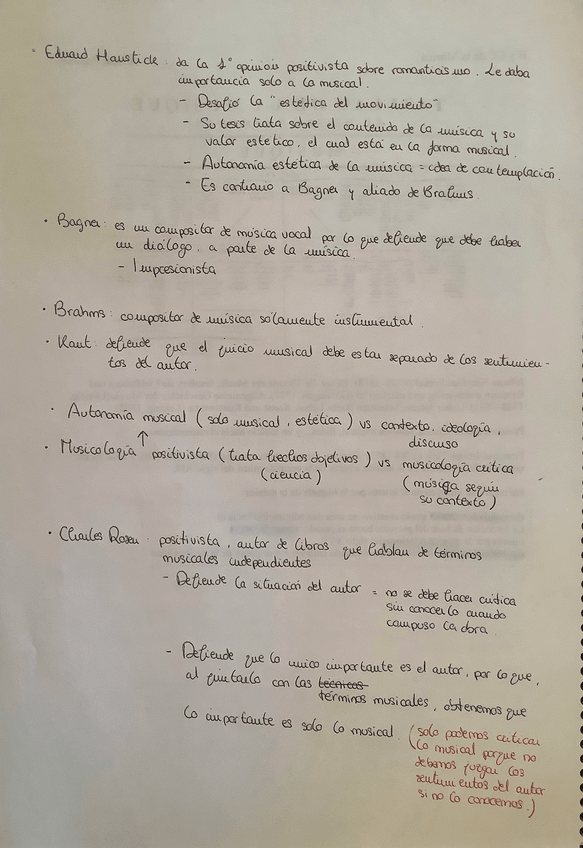 · Eduard Hanstick: da la 1ª opinión positivista sobre romanticismo. Le daba
importancia solo a lo musical.
- Desafió la "estética del movimiento"
- Su tesis trata sobre el contenido de la música y su
valor estético, el cual está en la forma musical.
- Autonomía estética de la música = idea de contemplación.
- Es contrario a Bagner y aliado de Brahms.
· Bagner: es un compositor de música vocal por lo que defiende que debe haber
un diálogo, a parte de la música.
- Impresionista
· Brahms: compositor de música solamente instrumental.
· Kant: defiende que el juicio musical debe estar separado de los sentimien-
tos del autor.
· Autonomía musical (solo musical, estética) vs contexto, ideología,
discurso
· Musicología ↑ positivista (trata hechos objetivos) vs musicología crítica
(ciencia) (música según
su contexto)
· Charles Rosen: positivista, autor de libros que hablan de términos
musicales independientes
- Defiende la situación del autor = no se debe hacer crítica
sin conocerlo cuando
compuso la obra.
- Defiende que lo único importante es el autor, por lo que,
al juntarlo con las técnicas
términos musicales, obtenemos que
lo importante es solo lo musical. (solo podemos criticar
lo musical porque no
debemos juzgar los
sentimientos del autor
si no lo conocemos.)